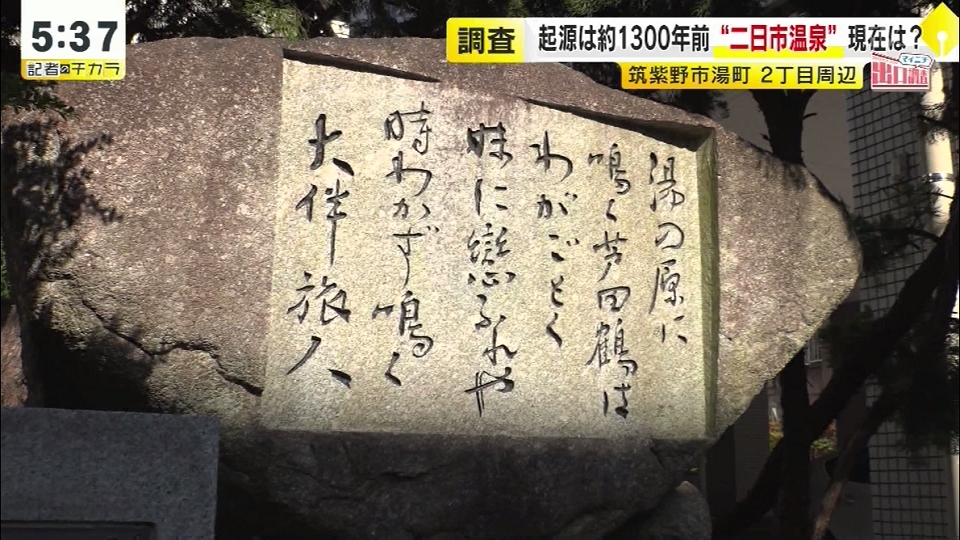 5:37
記者のチカラ
調査
起源は約1300年前 “二日市温泉” 現在は？
筑紫野市湯町 2丁目周辺
マイニチ
出口調査
湯の原に
鳴く芦田鶴は
わがごとく
妹に戀ふれや
時わかず鳴く
大伴旅人